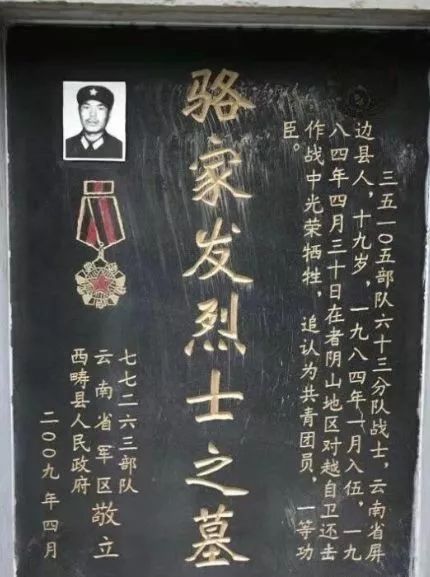 三五一〇五部队六十三分队战士，云南省屏
边县人，十九岁，一九八四年一月入伍，一九
八四年四月三十日在者阴山地区对越自卫还击
作战中光荣牺牲，追认为共青团员，一等功
臣。
骆家发烈士之墓
七七二六三部队
云南省军区敬立
西畴县人民政府
二〇〇九年四月